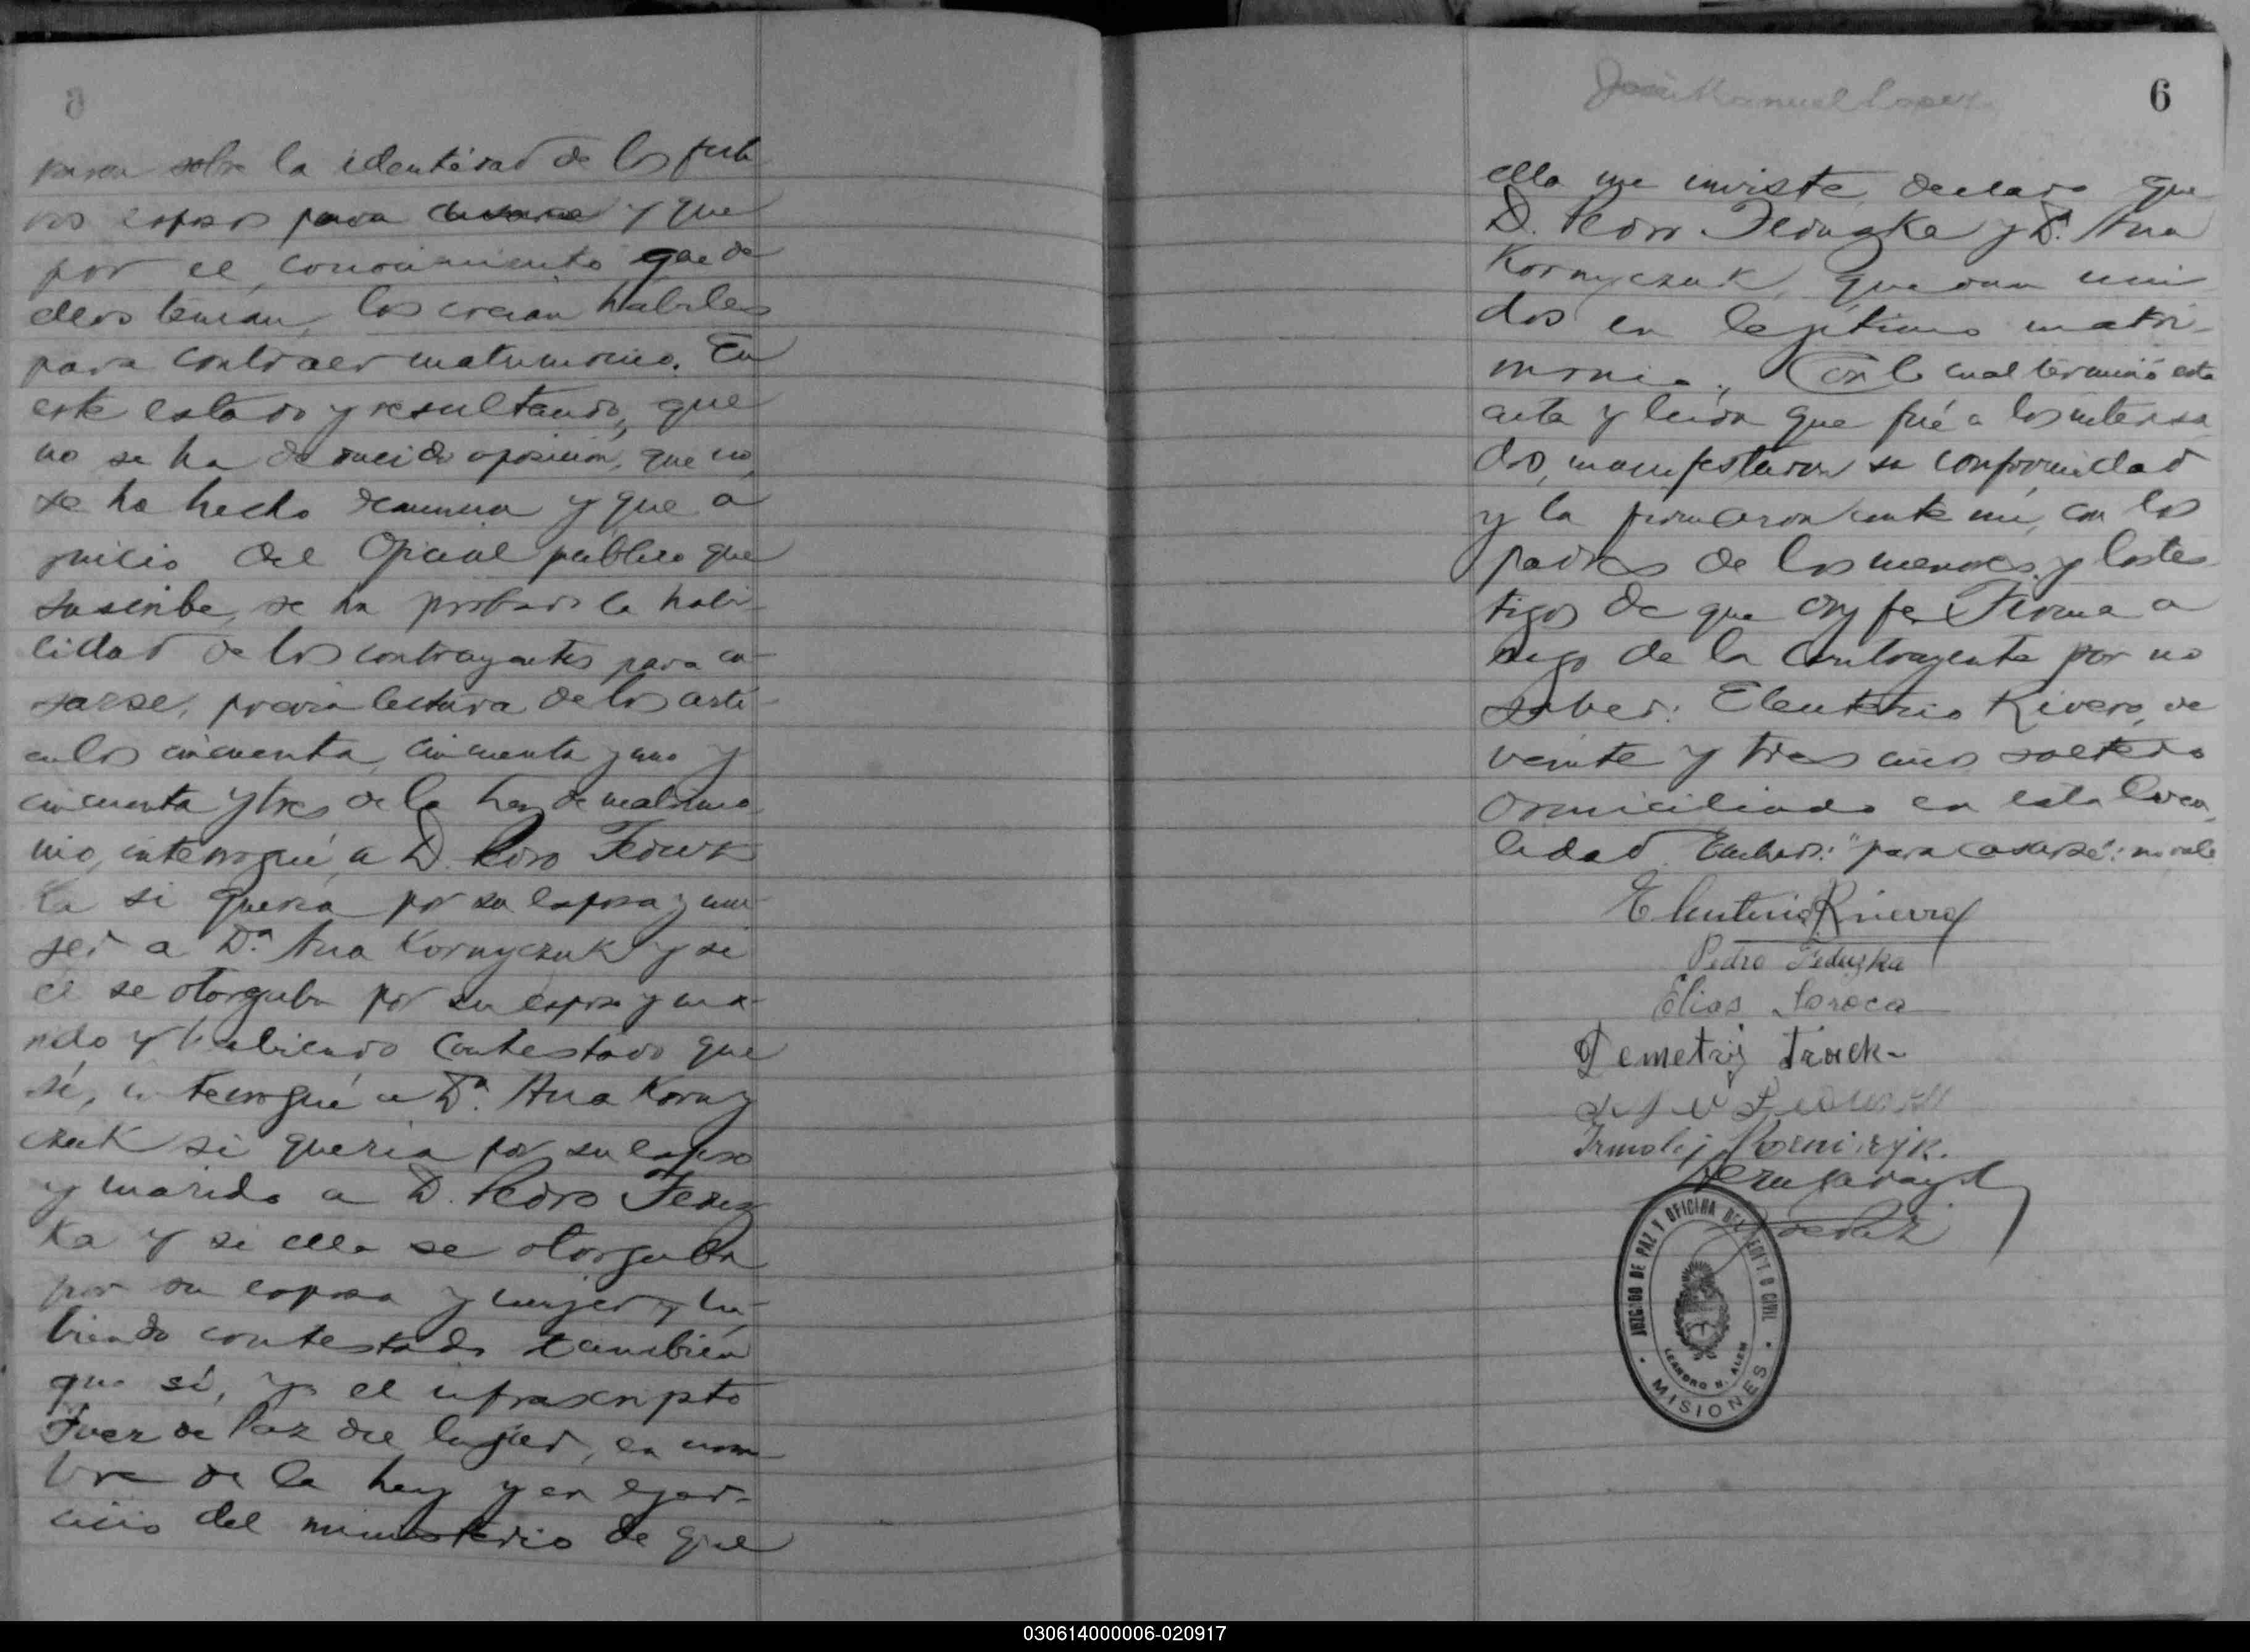 sobre la identidad de los futu
ros esposos para y que
por el conocimiento que de
ellos tenían, los creían hábiles
para contraer matrimonio. En
este estado y resultando, que
no se ha deducido oposición, que no
se ha hecho denuncia y que a
juicio del Oficial público que
suscribe, se ha probado la habi-
lidad de los contrayentes para ca-
sarse, previa lectura de los artí-
culos cincuenta, cincuenta y uno y
cincuenta y tres de la Ley de matrimo
nio, interrogué a D. Pedro
ka si quería por su esposa y mu-
jer a Da. Ana Kornyczuk y si
él se otorgaba por su esposo y ma-
rido y habiendo contestado que
sí, interrogué a Da. Ana Korny
czuk si quería por su esposo
y marido a D. Pedro Feduz
ka y si ella se otorgaba
por su esposa y mujer y ha-
biendo contestado también
que sí, yo el infrascripto
Juez de Paz del lugar, en nom
bre de la Ley y en ejer-
cicio del ministerio de que
José Manuel Lopez
6
ella me inviste, declaro que
D. Pedro Feduzka y Da. Ana
Kornyczuk, quedan uni
dos en legítimo matri-
monio. Con lo cual terminó esta
acta y leída que fué a los interesa
dos, manifestaron su conformidad
y la firmaron ante mí, con los
padres de los menores y los tes
tigos de que doy fe. Firma a
ruego de la contrayente por no
saber: Eleuterio Rivero, de
veinte y tres años soltero
domiciliado en esta loca
lidad. "para casarse": no vale
Eleuterio Rivero
Pedro Feduzka
Elias Soroca
Demetrij Trock
Korniczyk.
JUZGADO DE PAZ Y OFICINA DEL REGIST O CIVIL
LEANDRO N. ALEM
MISIONES
030614000006-020917